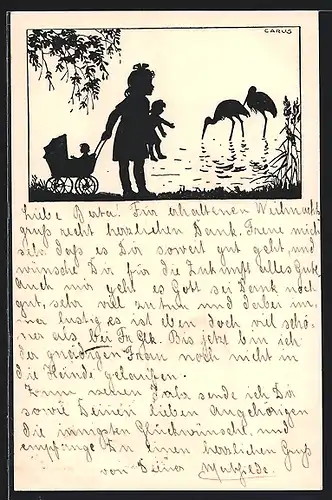 CARUS
Liebe Berta! Für erhaltenen Weihnachts
gruß recht herzlichen Dank. Freue mich
sehr daß es Dir soweit gut geht, und
wünsche Dir für die Zukunft alles Gute
auch mir geht es Gott sei Dank noch
gut, sehr viel zu tun und dabei im-
mer lustig es ist eben doch viel schö-
ner als bei Bis jetzt bin ich
der gnädigen Frau noch nicht in
die Hände gelaufen.
Zum neuen Jahr sende ich Dir
sowie Deinen lieben Angehörigen
die innigsten Glückwünsche und
empfange Du einen herzlichen Gruß
von Deiner Mathilde.